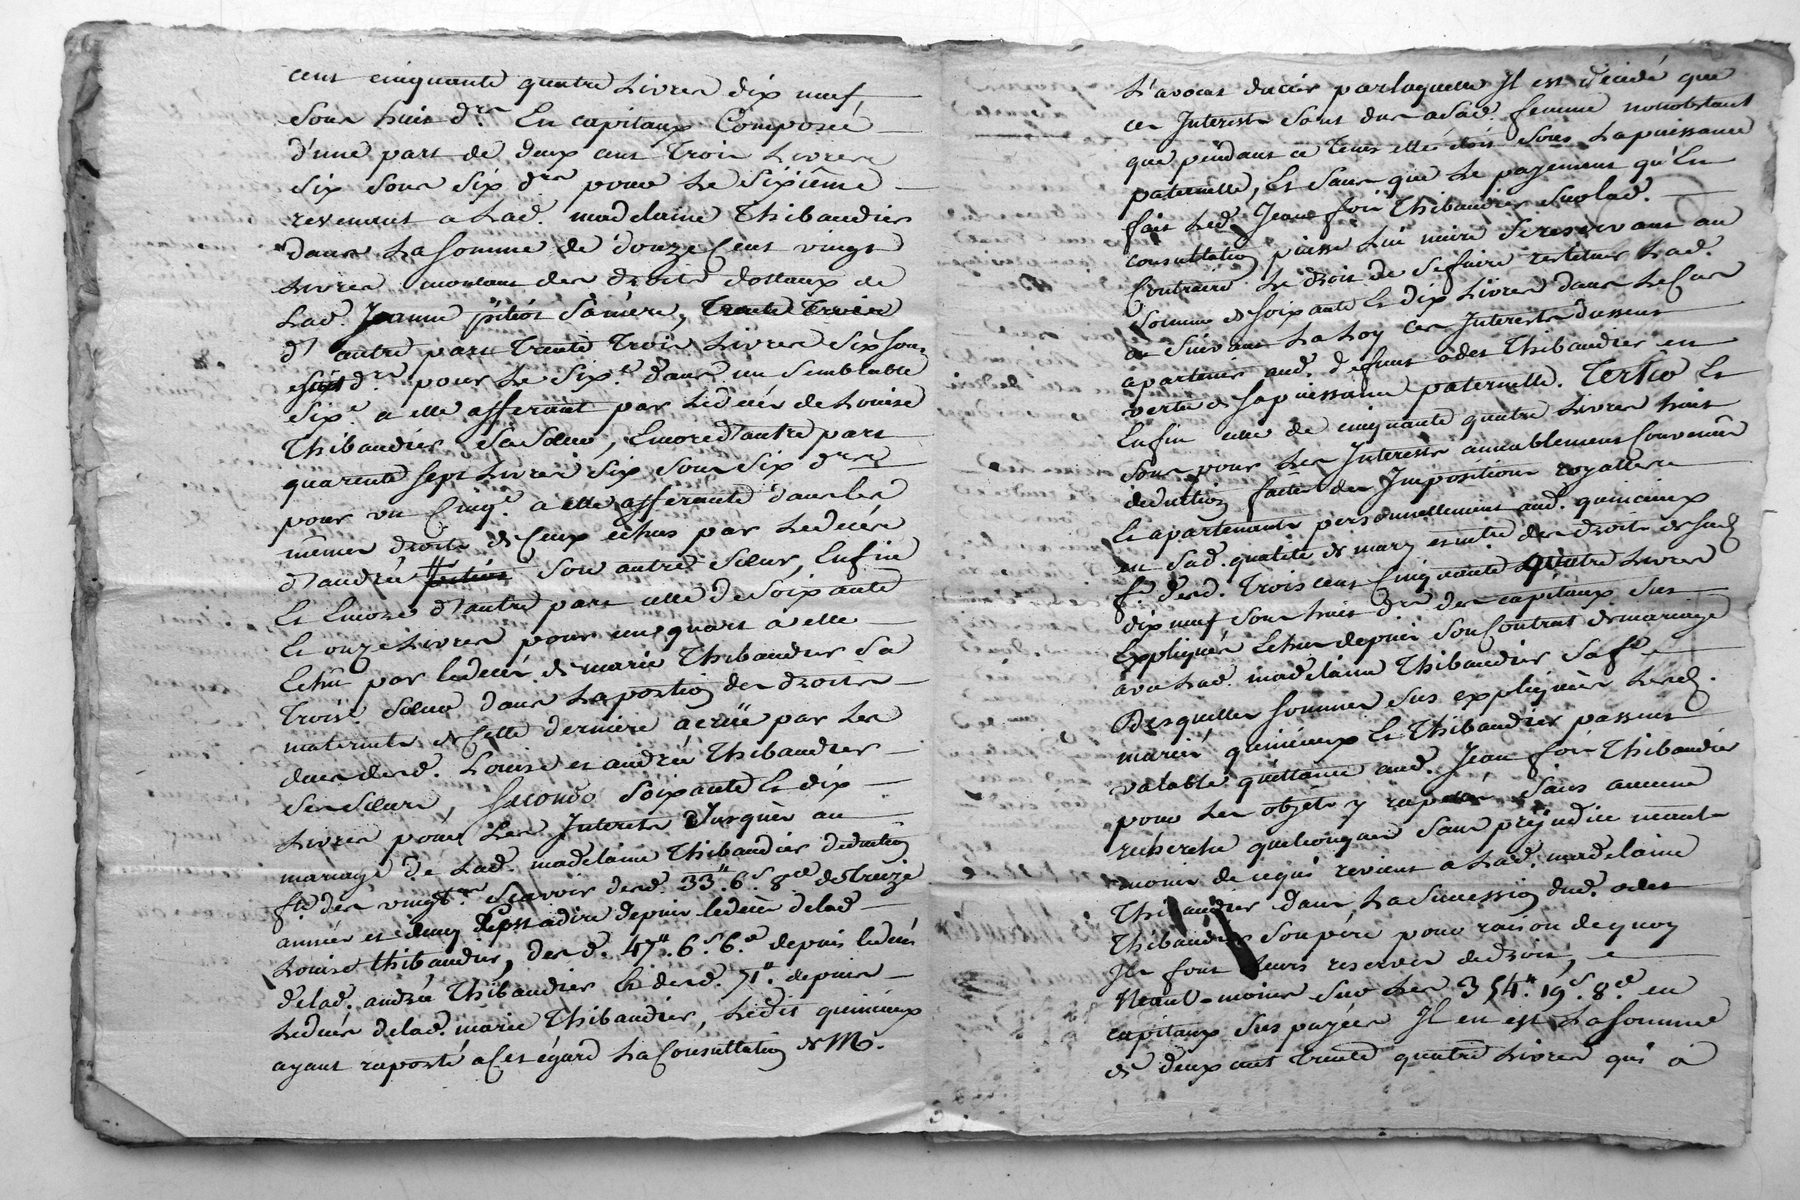 cent cinquante quatre Livres dix neuf
Sous huit d.rs En capitaux Composée
d'une part de deux cent Trois Livres
Six Sous Six d.rs pour Le Sixiême
revenant a Lad. madelaine Thibaudier
dans La Somme de douze Cent vingt
Livres montant des droits dottaux de
Lad. Jeanne Sa mere, Trente Trois
d'autre part Trente Trois Livres Six Sous
d.rs pour Le Six.e dans un Semblable
Six.e a elle afferant par Ledécés de Louise
Thibaudier Sa Sœur, Encore d'autre part
quarente Sept Livres Six Sous Six d.rs
pour un Cinq.e a elle afférante dans les
mêmes droits & Ceux echus par Ledécés
d'andrée Son autre Sœur, Enfin
Et Encore d'autre part celle de Soixante
Et onze Livres pour un quart a elle
Echu par Ledécés de marie Thibaudier Sa
Trois.e Sœur dans La portion des droits
maternels de Cette derniere acrüe par Les
ducs desd. Louise et andrée Thibaudier
Ses Sœurs, Secondo Soixante Et dix
Livres pour Les Interets Jusques au
mariage de Lad. madelaine Thibaudier deduction
f.te des vingt.mes Scavoir desd. 33.# 6.s 8.d de Treize
années et demy depuis ledécés delad
Louise thibaudier, desd. 47.# 6.s 6.d depuis ledécés
delad. andrée Thibaudier & desd. 71.# depuis
Ledécés delad. marie Thibaudier, Ledit quincieux
ayant raporté a Cet égard La Consultation de M.e
L'avocat par laquelle Il est décidé que
ces Interets Sont dus a Sad. femme nonobstant
que pendant ce tems elle étoit Sous La puissance
paternelle, Et Sans que Le payement qu'En
fait Led. Jean foi Thibaudier Sur lad.
consultation puisse Lui nuire Se reservant au
Contraire Le droit de Se faire restituer Lad.
Somme de Soixante Et dix Livres dans Le Cas
ou Suivant La Loy ces Interets dussent
apartenir aud. defunt odet Thibaudier en
vertu de Sa puissance paternelle. Tertio Et
Enfin celle de cinquante quatre Livres huit
Sous pour Les Interets amiablement Convenus
deduction faite des Impositions royalles
Et apartenants personnellement aud. quincieux
en Sad. qualité de mary et maitre des droits de Sad.
f.e desd. Trois cent Cinquante quatre Livres
dix neuf Sous huit d.rs des capitaux Sus
Expliqués Echus depuis Son Contrat de mariage
avec Lad. madelaine Thibaudier Sa f.e
Desquelles Sommes Sus expliquées Lesd.
mariés quincieux Et Thibaudier passent
valable quittance aud. Jean foi Thibaudier
pour Les objets y raportés Sans aucune
recherche quelconque Sans prejudice neant-
moins de ce qui revient a Lad. madelaine
Thibaudier dans La Succession dud. odet
Thibaudier Son pére pour raison de quoy
Ils font leurs reserves de droit,
Neant-moins Sur Les 354.# 19.s 8.d en
capitaux Sus payées Il en est La Somme
de deux cent Trente quatre Livres qui a